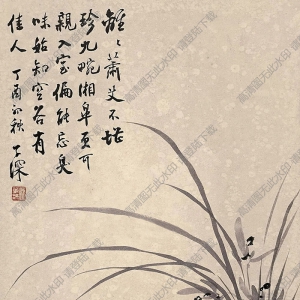 蕭艾不堪
珍九畹湘皋更可
親入室偏能忘臭
味始知空谷有
佳人 丁酉初秋